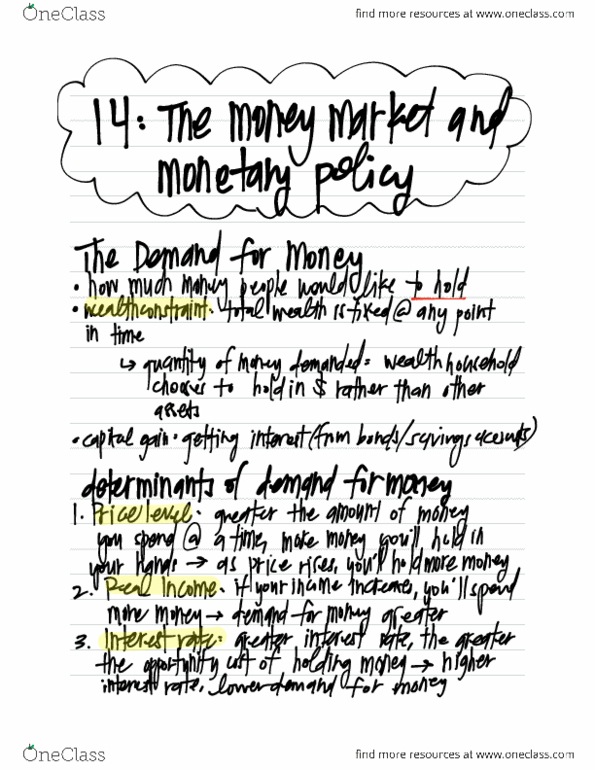 OneClass
find more resources at www.oneclass.com
14: The money market and
monetary policy
The Demand for Money
• how much money people would like to hold
• wealth constraint: total wealth is fixed @ any point
in time
↳ quantity of money demanded = wealth household
chooses to hold in $ rather than other
assets
• capital gain: getting interest (from bonds/savings accounts)
determinants of demand for money
1. Price level: greater the amount of money
you spend @ a time, more money you'll hold in
your hands → as price rises, you'll hold more money
2. Real Income: if your income increases, you'll spend
more money → demand for money greater
3. Interest rate: greater interest rate, the greater
the opportunity cost of holding money → higher
interest rate, lower demand for money
OneClass
find more resources at www.oneclass.com